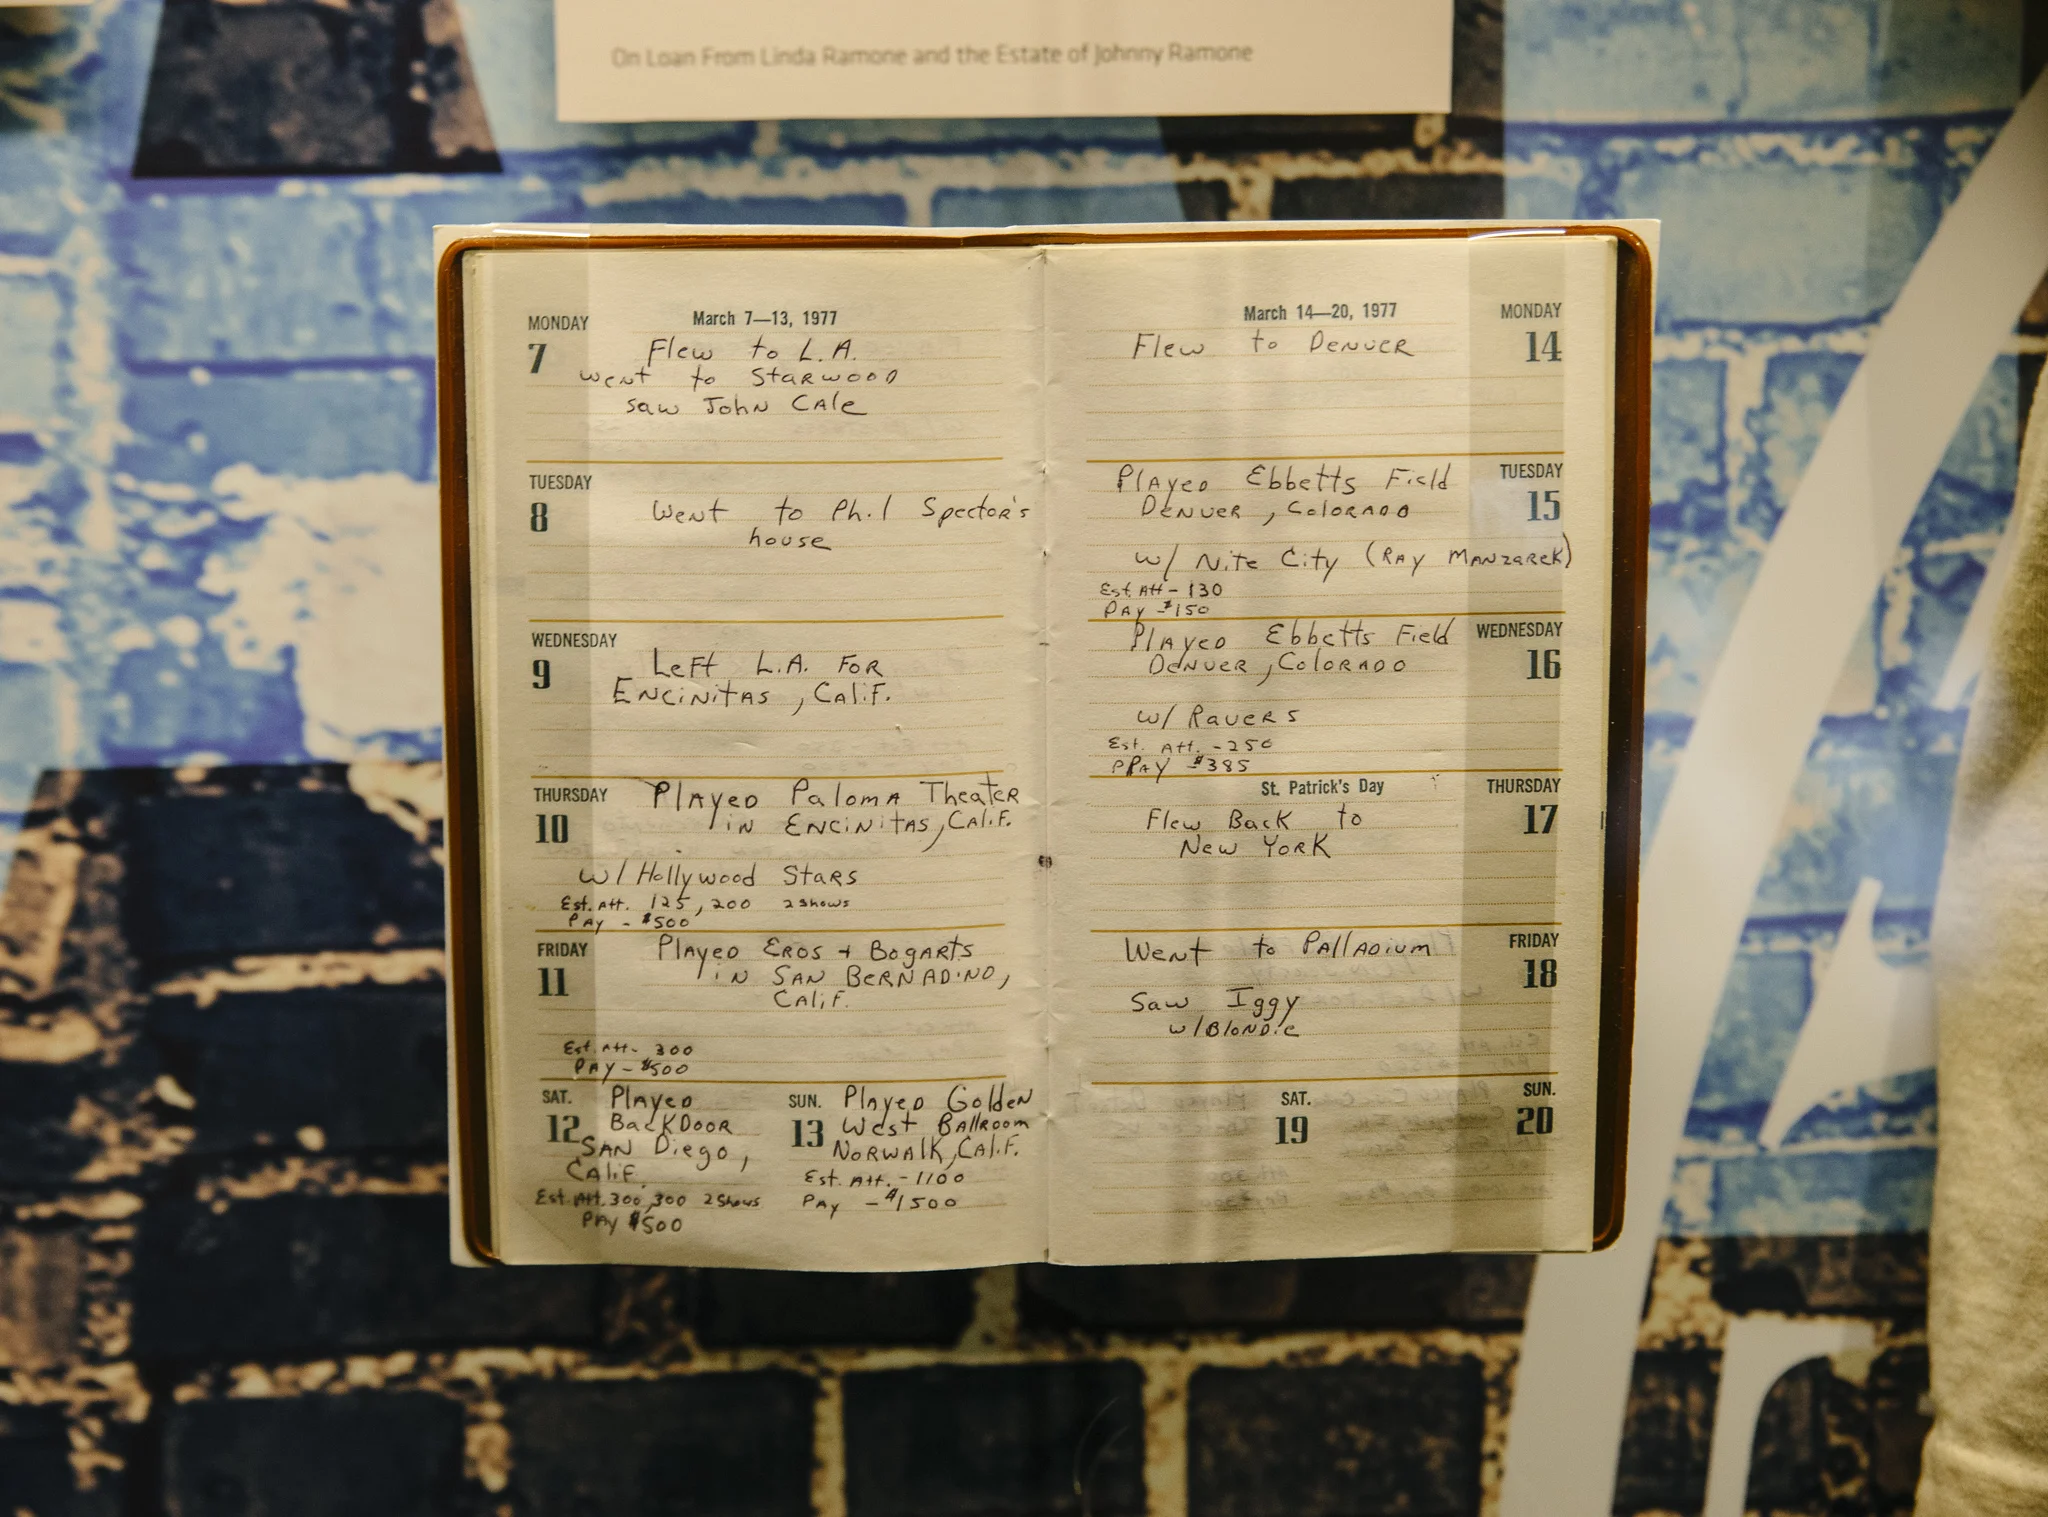 On Loan From Linda Ramone and the Estate of Johnny Ramone
March 7—13, 1977
MONDAY
7
Flew to L.A.
went to Starwood
saw John Cale
TUESDAY
8
Went to Phil Spector's
house
WEDNESDAY
9
Left L.A. For
Encinitas, Calif.
THURSDAY
10
Played Paloma Theater
in Encinitas, Calif.
w/ Hollywood Stars
Est. Att. 125, 200 2 shows
Pay - $500
FRIDAY
11
Played Eros + Bogarts
in San Bernadino,
Calif.
Est. Att- 300
Pay - $500
SAT.
12
Played
Back Door
San Diego,
Calif.
Est. Att. 300, 300 2 Shows
Pay $500
SUN.
13
Played Golden
West Ballroom
Norwalk, Calif.
Est. Att. - 1100
Pay - $1500
March 14—20, 1977
MONDAY
14
Flew to Denver
TUESDAY
15
Played Ebbetts Field
Denver, Colorado
w/ Nite City (Ray Manzarek)
Est. Att - 130
Pay - $150
WEDNESDAY
16
Played Ebbetts Field
Denver, Colorado
w/ Ravers
Est. Att. - 250
PPay - $385
St. Patrick's Day
THURSDAY
17
Flew Back to
New York
FRIDAY
18
Went to Palladium
Saw Iggy
w/ Blondie
SAT.
19
SUN.
20